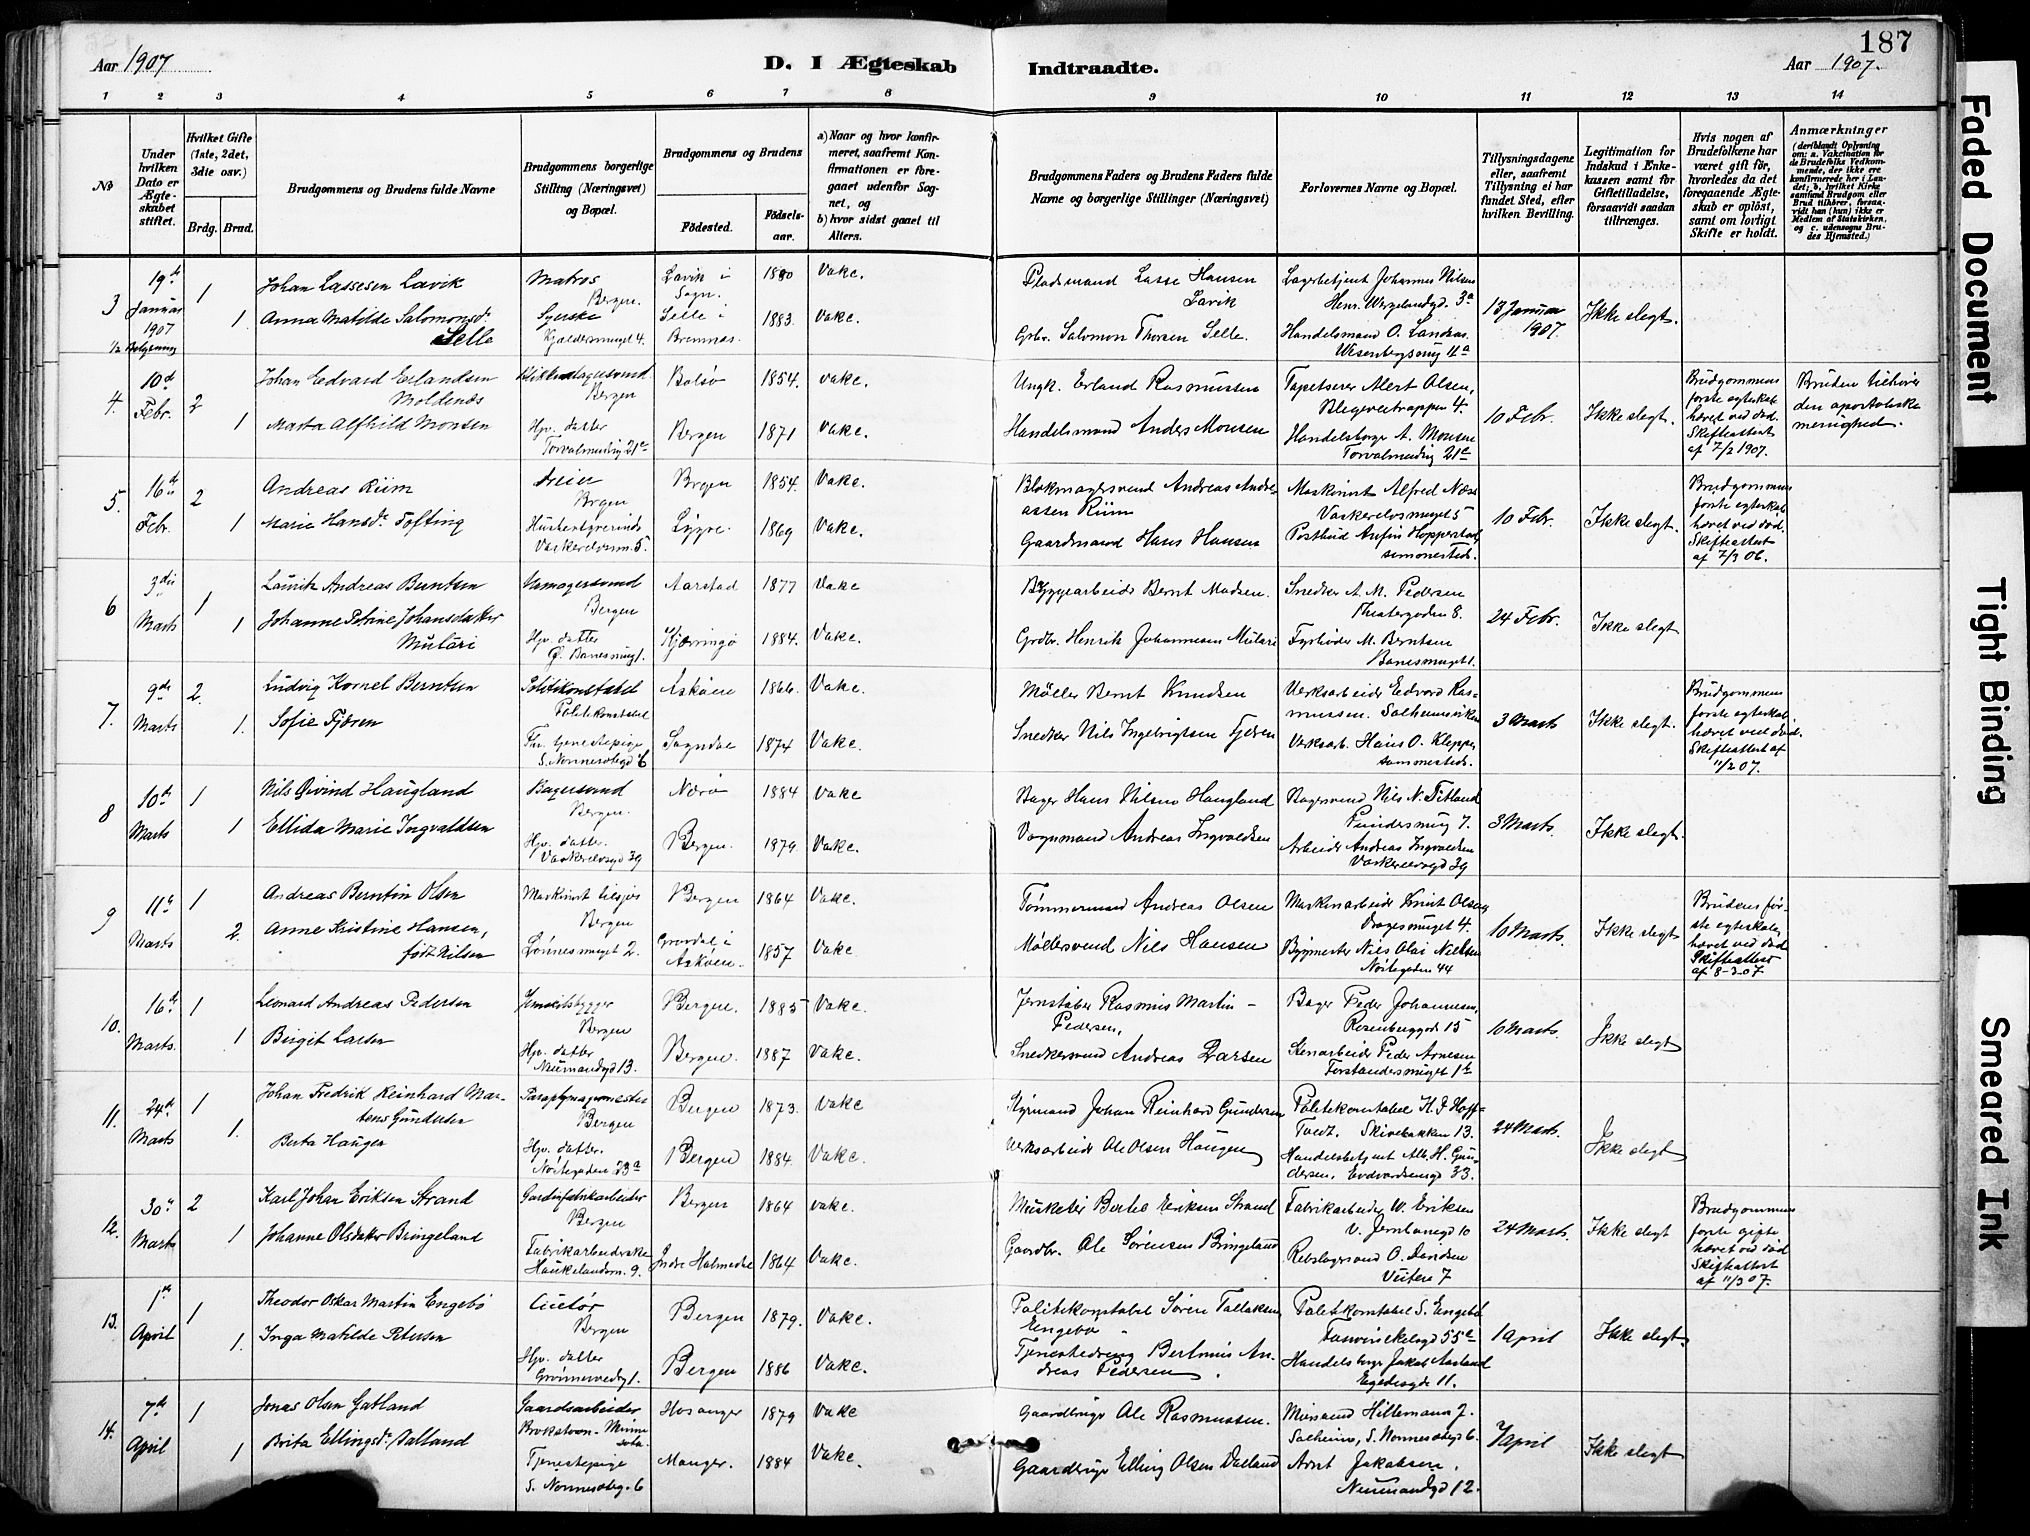 187
Aar 1907
D. I Ægteskab
Indtraadte.
Aar 1907.
1 2 3 4 5 6 7 8 9 10 11 12 13 14
No
Under hvilken Dato er Ægteskabet stiftet.
Hvilket Gifte (1ste, 2det, 3die osv.)
Brdg. Brud.
Brudgommens og Brudens fulde Navne
Brudgommens borgerlige Stilling (Næringsvei) og Bopæl.
Brudgommens og Brudens
Fødested.
Fødselsaar.
a) Naar og hvor konfirmeret, saafremt Konfirmationen er foregaaet udenfor Sognet, og
b) hvor sidst gaaet til Alters.
Brudgommens Faders og Brudens Faders fulde Navne og borgerlige Stillinger (Næringsvei)
Forlovernes Navne og Bopæl.
Tillysningsdagene eller, saafremt Tillysning ei har fundet Sted, efter hvilken Bevilling.
Legitimation for Indskud i Enkekassen samt for Giftetilladelse, forsaavidt saadan tiltrænges.
Hvis nogen af Brudefolkene har været gift før, hvorledes da det foregaaende Ægteskab er opløst, samt om lovligt Skifte er holdt.
Anmærkninger
(deriblandt Oplysning om: a. Vakcination for de Brudefolks Vedkommende, der ikke ere konfirmerede her i Landet; b. hvilket Kirkesamfund Brudgom eller Brud tilhører, forsaavidt han (hun) ikke er Medlem af Statskirken, og c. udensogns Brudes Hjemsted.)
3
19de Januar 1907
1
Johan Lassesen Lavik
Matros
Bergen.
Lavik i Sogn.
1880
Vake.
Pladsmand Lasse Hansen Lavik
Lagerbetjent Johannes Nilsen
Henr. Wergelandsgd. 3a
13 Januar 1907.
Ikke slegt.
1
Anna Matilde Salomonsd. Selle
Syerske
Kjeldersmuget 4.
Selle i Bremnæs.
1883.
Vake.
Gbr. Salomon Thorsen Selle.
Handelsmand O. Landaas
Wesenbergsmug 4a
4.
10de Febr.
2
Johan Edvard Erlandsen Moldenæs
Blikkenslagersvend.
Bergen
Bolsø
1854.
Vake.
Ungk. Erland Rasmussen
Tapetserer Alert Olsen,
Blegeveitrappen 4.
10 Febr.
Ikke slegt.
Brudgommens første egteskab hævet ved død. Skifteattest af 7/2 1907.
Bruden tilhører den apostoliske menighed.
1
Marta Alfhild Monsen
Hpv. datter
Torvalmending 21c
Bergen
1871
Vake.
Handelsmand Anders Monsen
Handelsborger A. Monsen
Torvalmending 21c
5.
16de Febr.
2
Andreas Riim
Bergen
Bergen
1854.
Vake.
Blokmagersvend Andreas Andreassen Riim
Maskinist Alfred Næss
Vaskerelvsmuget 5
10 Febr.
Ikke slegt.
Brudgommens første egteskab hævet ved død. Skifteattest af 7/3 06.
1
Marie Hansd. Tofting
Husbestyrerinde
Vaskerelvsm. 5.
Lygre.
1869
Vake.
Gaardmand Hans Hansen
Postbud Anfin Hopperstad
sammesteds.
6
3die Marts
1
Laurits Andreas Berntsen
Urmagersvend
Bergen
Aarstad
1877
Vake
Byggearbeider Bernt Madsen.
Snedker A. M. Pedersen
Theatergaden 8.
24 Febr.
Ikke slegt
1
Johanne Petrine Johansdatter
Hpv. datter
Ø. Banesmug 1.
Kjæringø
1884.
Vake.
Grdbr. Henrik Johannesen
Fyrbøder M. Berntsen
Banesmuget 1.
7.
9de Marts
2.
Ludvig Kornel Berntsen
Politikonstabel
Politekonstabel
Askøen
1866.
Vake.
Møller Bernt Knudsen
Verksarbeider Edvard Rasmussen. Solheimsviken
3 Marts
Ikke slegt.
Brudgommens første egteskab hævet ved død. Skifteattest af 11/2 07.
1.
Sofie Fjæren
Fhv. tjenestepige
S. Nonnesætergd 6
Sogndal
1874
Vake.
Snedker Nils Ingebrigtsen Fjæren
Verksarb. Hans O. Kleppe
sammesteds.
8
10de Marts
1
Nils Øivind Haugland
Bagersvend
Bergen.
Nærø
1884
Vake
Bager Hans Nilsen Haugland
Bagersvend Nils N. Titland
Pundersmug 7.
3 Marts.
Ikke slegt.
1
Ellida Marie Ingvaldsen
Hpv. datter.
Vaskerelvsgd 39
Bergen.
1879.
Vake.
Vognmand Andreas Ingvaldsen
Arbeider Andreas Ingvaldsen
Vaskerelvsgd 39
9
11te Marts.
1
Andreas Berntin Olsen
Maskinist tilsjøs
Bergen
Bergen
1864
Vake.
Tømmermand Andreas Olsen
Maskinarbeider Knut Olsen
Dragesmuget 4.
10 Marts.
Ikke slegt
Brudens første egteskab hævet ved død Skifteattest af 8-3-07.
2.
Anne Kristine Hansen, født Nilsen
Lønnesmuget 2.
Gravdal i Askøen.
1857
Vake.
Møllersvend Nils Hansen
Bygmester Nils Olai Nielsen
Nøstegaden 44
10.
16de Marts.
1
Leonard Andreas Pedersen
Jernskibsbygger
Bergen
Bergen.
1885
Vake.
Jernstøber Rasmus Martin Pedersen,
Bager Peder Johannesen,
Rosenberggd 15
10 Marts.
Ikke slegt
1
Birgit Larsen
Hpv. datter
Neumannsgd 13.
Bergen.
1887
Vake.
Snedkersvend Andreas Larsen
Stenarbeider Peder Arnesen
Forstandersmuget 1b
11.
24de Marts
1
Johan Fredrik Reinhard Martens Gundersen
Paraplymagermester
Bergen
Bergen
1873.
Vake
Styrmand Johan Reinhard Gundersen
Politekonstabel H. J. Hoff-
Skivebakken 13.
24 Marts.
Ikke slegt
1.
Berta Haugen
Hpv. datter.
Nøstegaden 23a
Bergen
1884.
Vake.
Verksarbeider Ole Olsen Haugen
Handelsbetjent Alb. H. Gundersen, Edvardsensgd 33.
12.
30te Marts
2
Karl Johan Eriksen Strand
Gardinfabrikarbeider
Bergen
Bergen
1864
Vake.
Musketer Bertel Eriksen Strand
Fabrikarbeider W. Eriksen
V. Jernbanegd 10
24 Marts.
Ikke slegt
Brudgommens første gifte hævet ved død Skifteattest af 11/3 07.
1
Johanne Olsdatter Bringeland
Fabrikarbeiderske
Haukelandsv. 9.
Indre Holmedal
1864
Vake.
Gaardbr. Ole Sørensen Bringeland
Rebslagersvend O. Davidsen
Veiten 7
13.
1ste April
1
Theodor Oskar Martin Engebø
Bergen
Bergen
1879.
Vake.
Politekonstabel Søren Tollaksen Engebø
Politekonstabel S. Engebø
55a
1 April
Ikke slegt.
1.
Inga Matilde Petersen
Hpv. datter
Bergen
1886
Vake.
Tjenestedreng Bertonius Andreas Pedersen
Handelsborger Jakob Aasland
Egedesgde 11.
14.
7de April
1
Jonas Olsen Gatland
Gaardsarbeider
Minnesota.
Hosanger
1879
Vake
Gaardbruger Ole Rasmussen.
Hillemann J. Solheim, S. Nonnesætergd 6.
7 April
Ikke slegt
1
Brita Ellingsd. Dalland
Tjenestepige
S. Nonnesæterg. 6
Manger.
1884
Vake.
Gaardbruger Elling Olsen Dalland
Arnt Jakobsen,
Neumannsgd 12.
Faded Document
Tight Binding
Smeared Ink